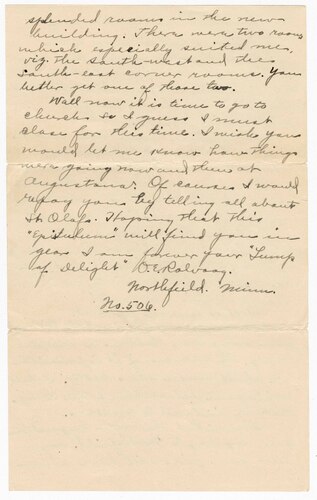 splended rooms in the new
building. There were two rooms
which especially suited me,
viz. the south-west and the
south-east corner rooms. You
better get one of those two.
Well now it is time to go to
church so I guess I must
close for this time. I wish you
would let me know how things
were going now and then at
Augustana. Of causes I would
repay you by telling all about
St. Olafs. Hoping that this
"Epistulum" will find you in
I am forever your "Lump
of Delight" O.E. Rolvaag.
Northfield. Minn.
No. 506.